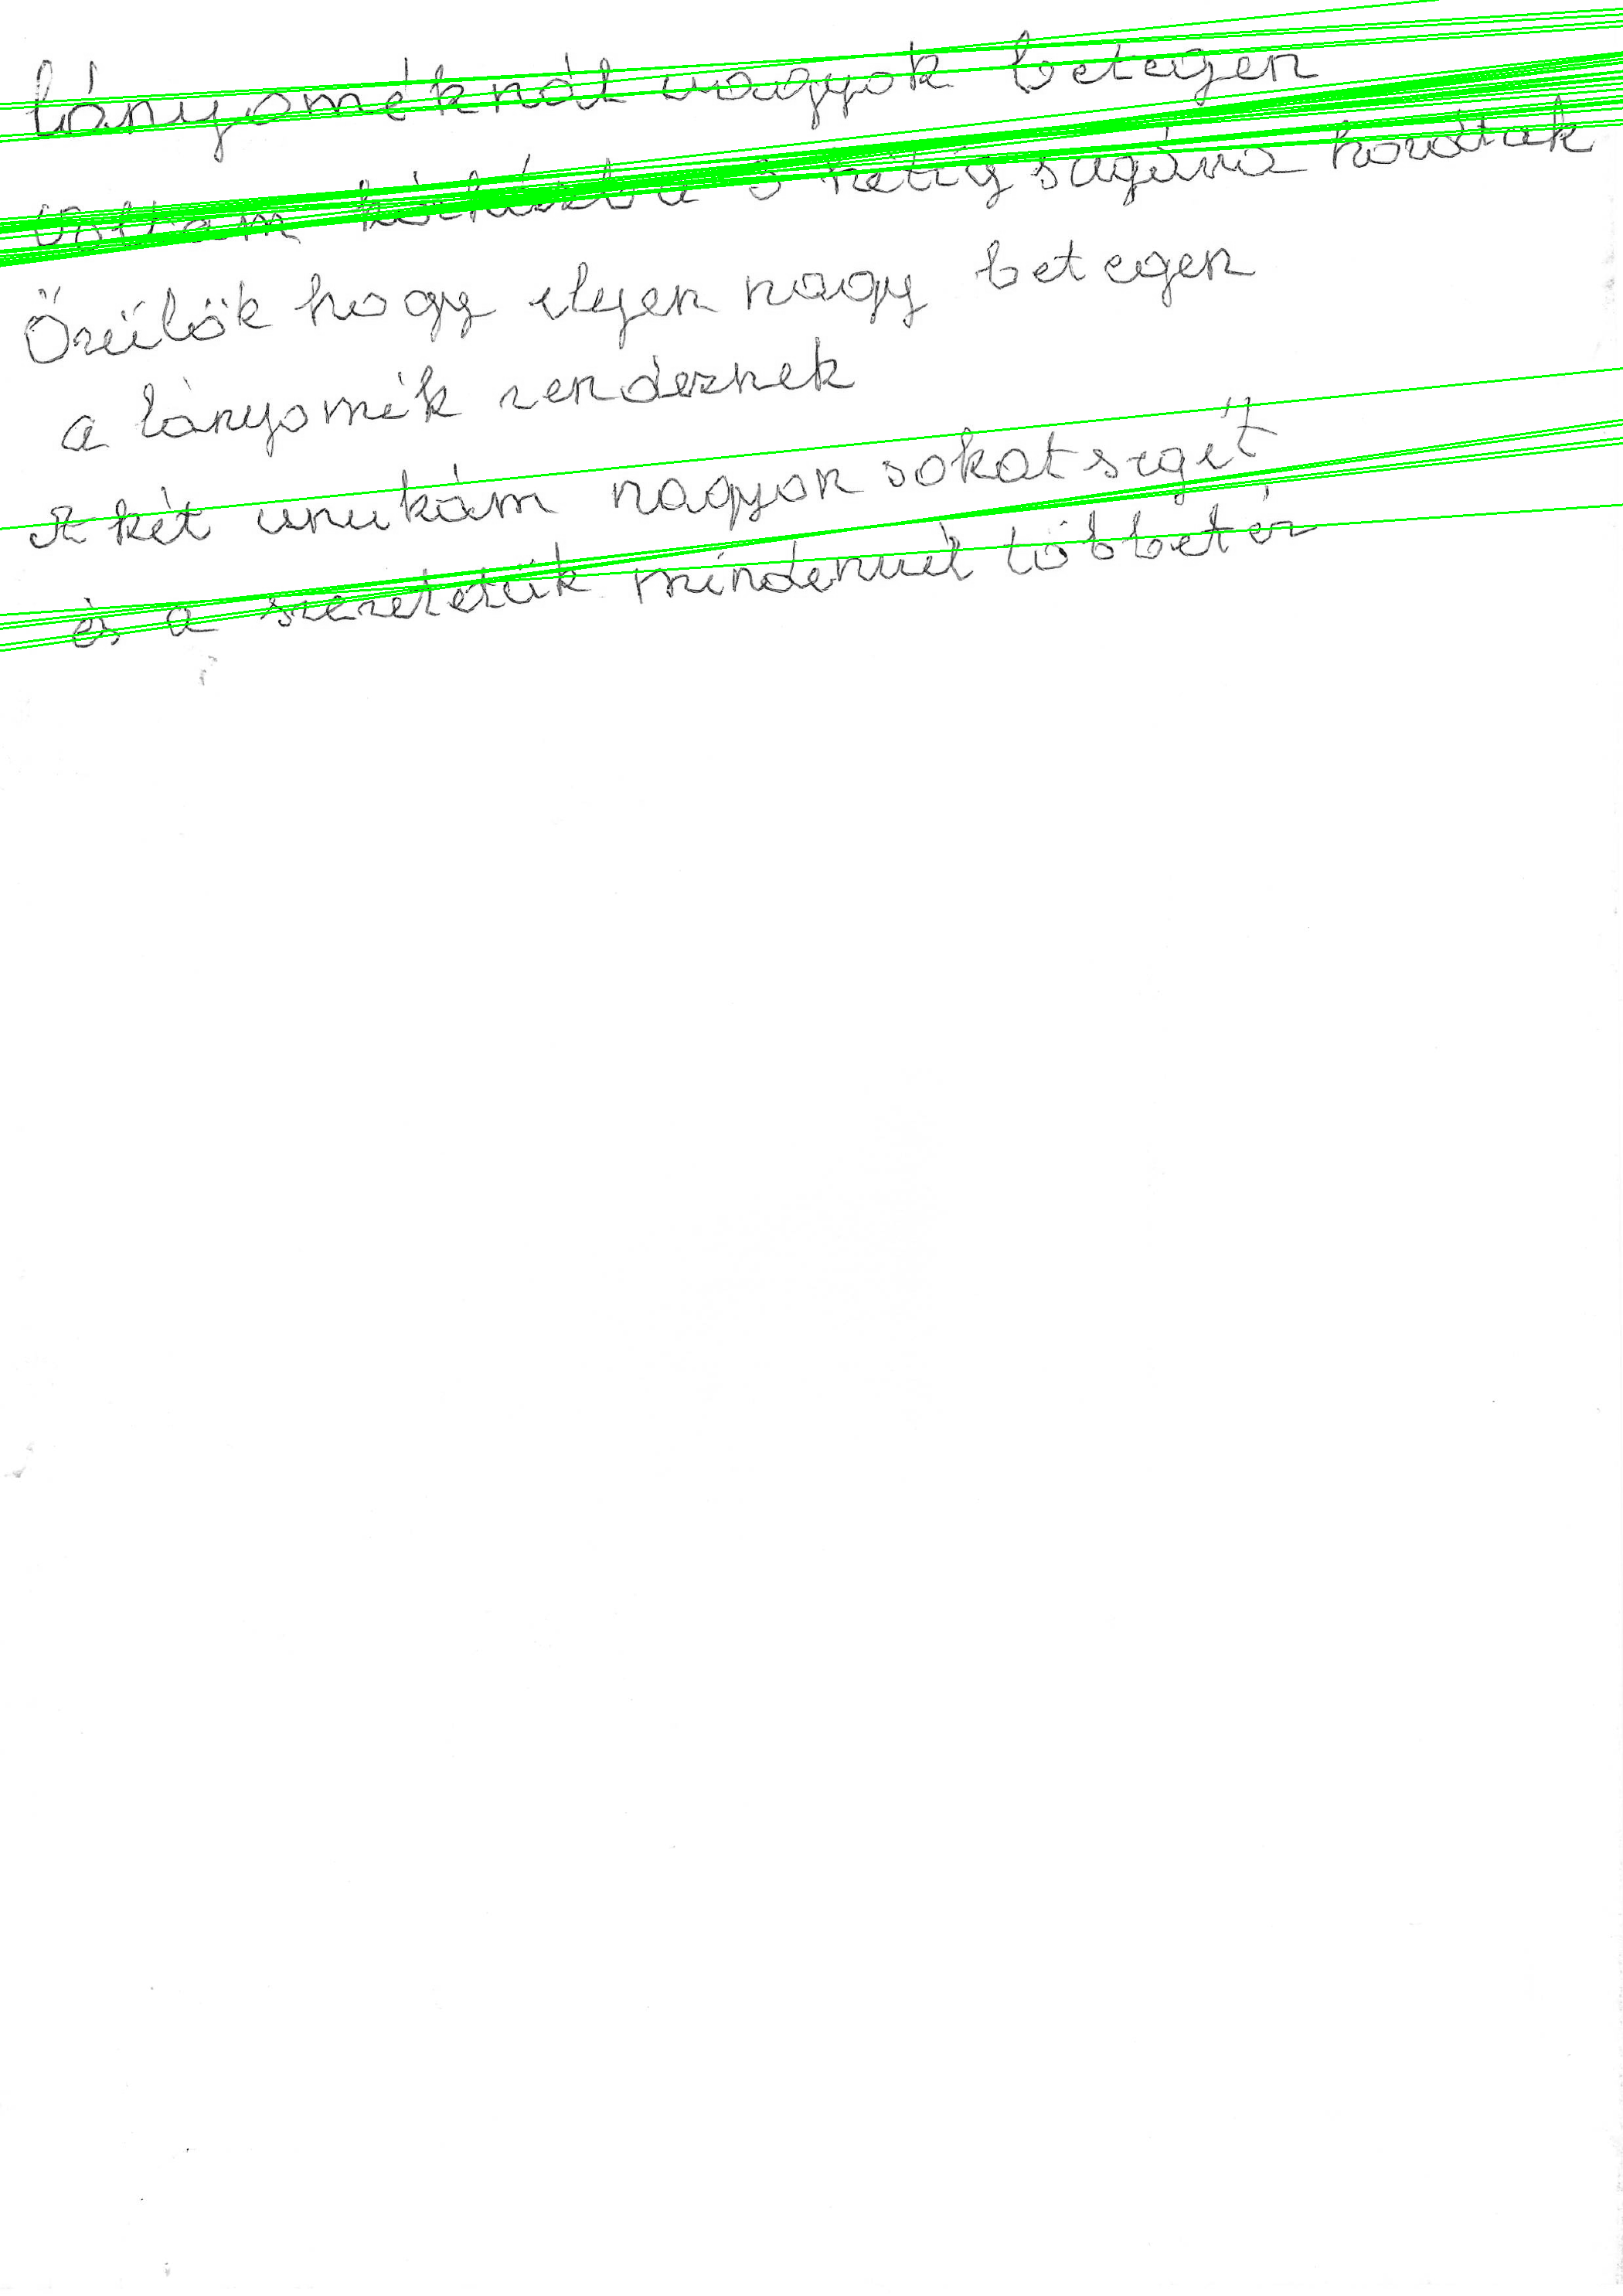 lányoméknál vagyok betegen
Voltam kórházba 3 hétig sugárra hordtak
Őrülök hogy ilyen nagy betegen
a lányomék rendeznek
A két unukám nagyon sokat segít
és a szeretetük mindenuél többet ér